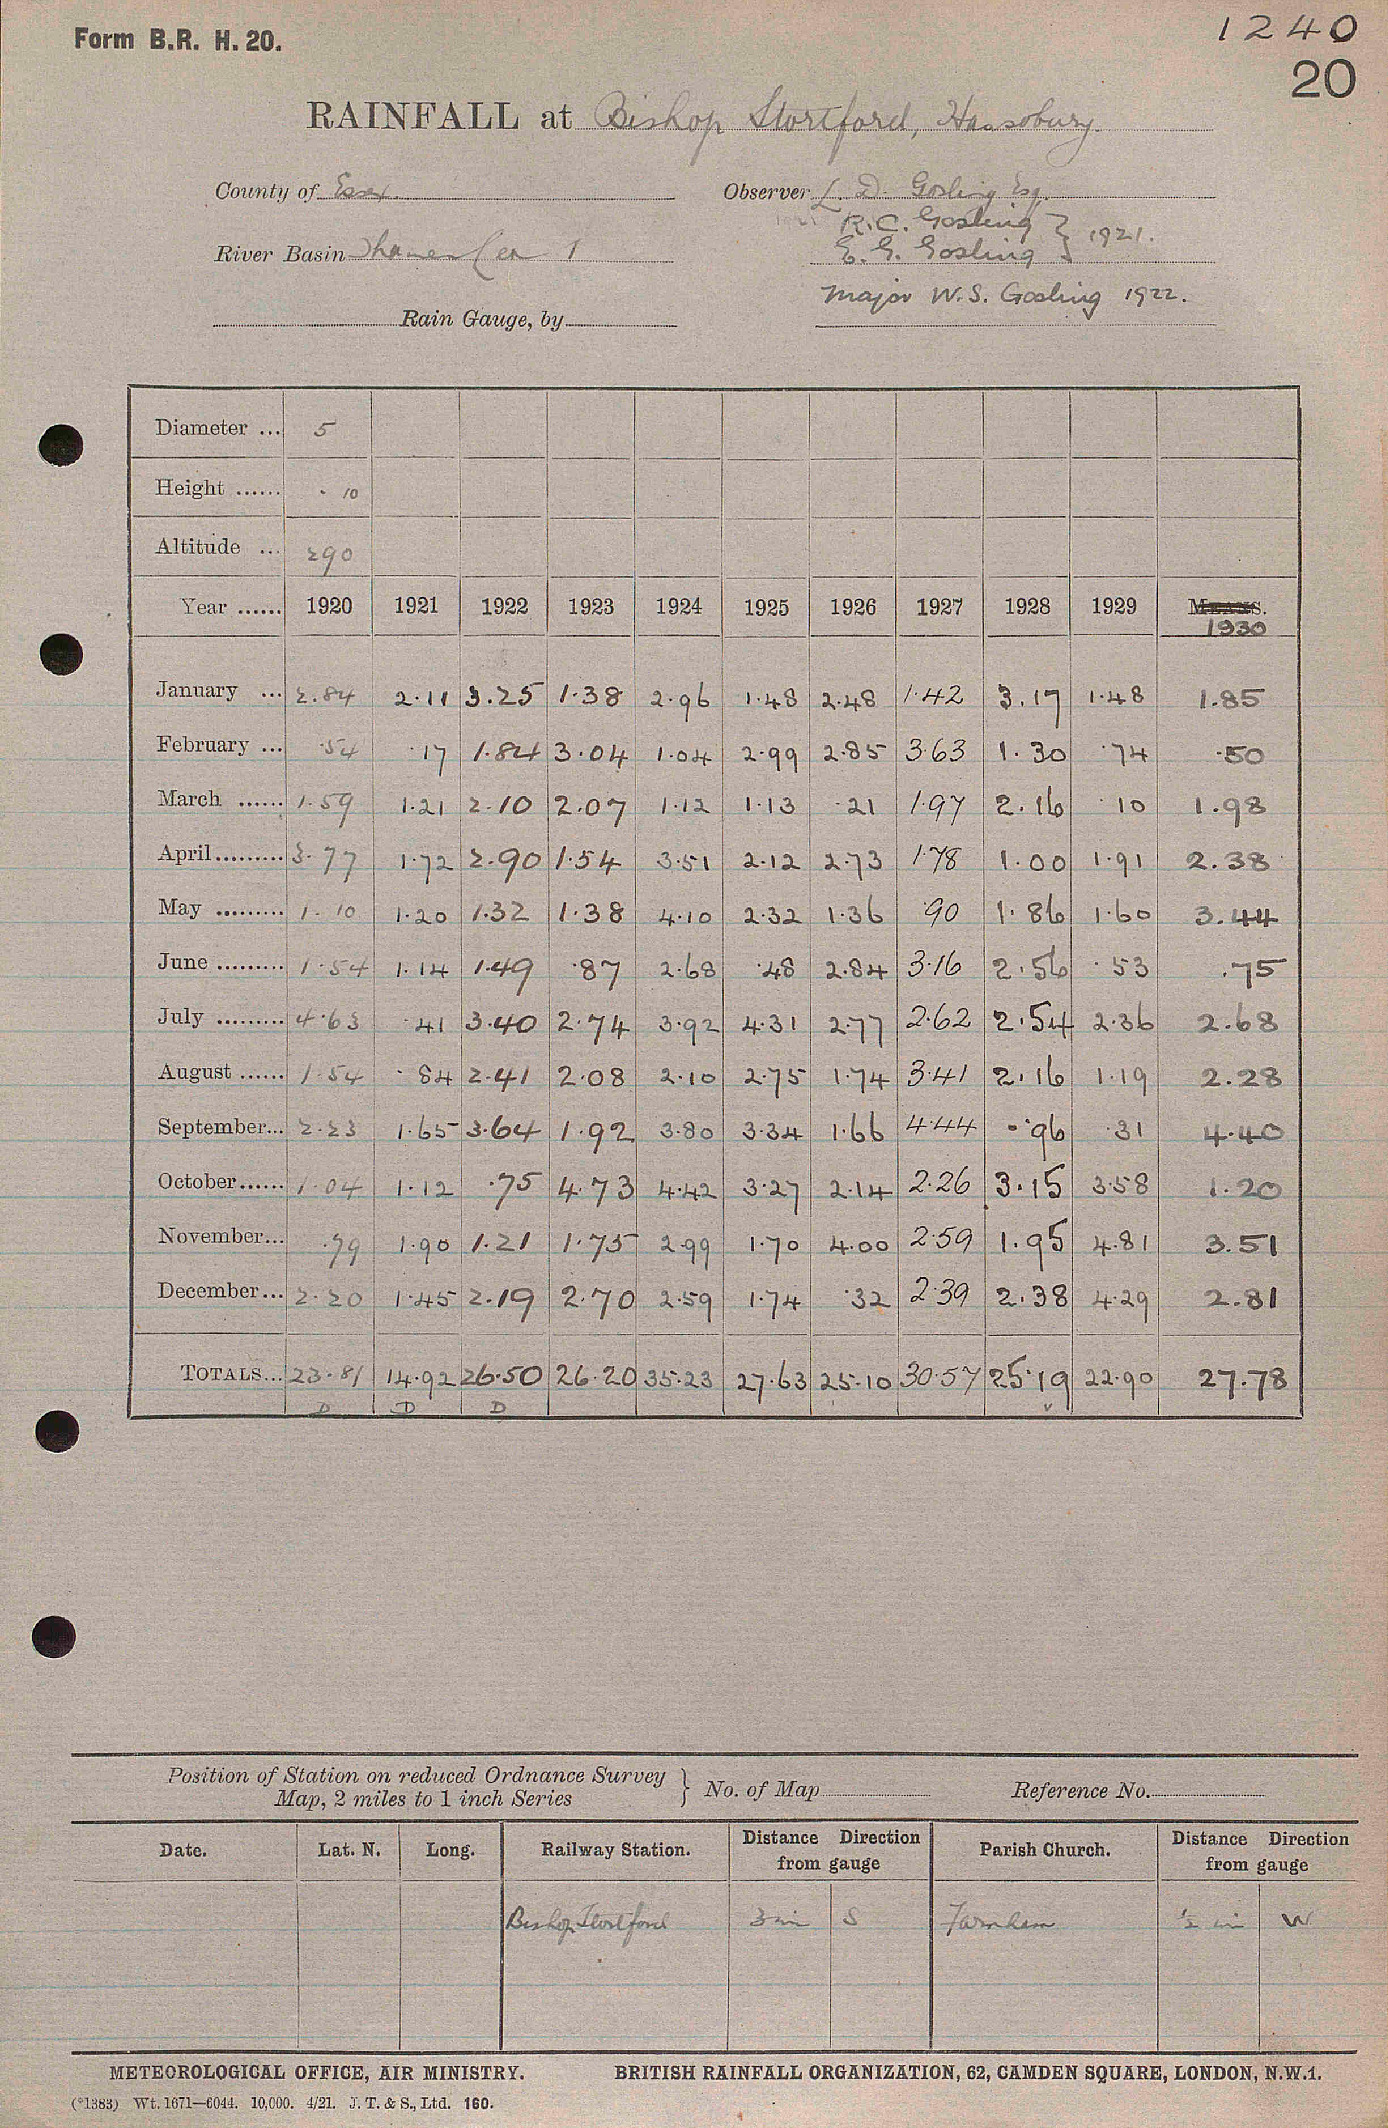 Form B.R. H. 20.
1240
20
RAINFALL at Bishop Stortford, Hassobury.
County of Essex Observer L. D. Gosling Esq.
R.C. Gosling } 1921.
River Basin Thames Lea 1 E. G. Gosling
Major W.S. Gosling 1922.
Rain Gauge, by
Diameter ... 5
Height ...... .10
Altitude ... 290
Year ...... 1920 1921 1922 1923 1924 1925 1926 1927 1928 1929 MEANS.
1930
January ... 2.84 2.11 3.25 1.38 2.96 1.48 2.48 1.42 3.17 1.48 1.85
February ... .54 .17 1.84 3.04 1.04 2.99 2.85 3.63 1.30 .74 .50
March ...... 1.59 1.21 2.10 2.07 1.12 1.13 .21 1.97 2.16 .10 1.98
April ......... 3.77 1.72 2.90 1.54 3.51 2.12 2.73 1.78 1.00 1.91 2.38
May ......... 1.10 1.20 1.32 1.38 4.10 2.32 1.36 .90 1.86 1.60 3.44
June ......... 1.54 1.14 1.49 .87 2.68 .48 2.84 3.16 2.56 .53 .75
July ......... 4.63 .41 3.40 2.74 3.92 4.31 2.77 2.62 2.54 2.36 2.68
August ...... 1.54 .84 2.41 2.08 2.10 2.75 1.74 3.41 2.16 1.19 2.28
September... 2.23 1.65 3.64 1.92 3.80 3.34 1.66 4.44 .96 .31 4.40
October...... 1.04 1.12 .75 4.73 4.42 3.27 2.14 2.26 3.15 3.58 1.20
November... .79 1.90 1.21 1.75 2.99 1.70 4.00 2.59 1.95 4.81 3.51
December... 2.20 1.45 2.19 2.70 2.59 1.74 .32 2.39 2.38 4.29 2.81
TOTALS... 23.81 14.92 26.50 26.20 35.23 27.63 25.10 30.57 25.19 22.90 27.78
D D D v
Position of Station on reduced Ordnance Survey } No. of Map Reference No.
Map, 2 miles to 1 inch Series
Date. Lat. N. Long. Railway Station. Distance Direction from gauge Parish Church. Distance Direction from gauge
Bishop Stortford 3 mi S Farnham ½ mi W
METEOROLOGICAL OFFICE, AIR MINISTRY. BRITISH RAINFALL ORGANIZATION, 62, CAMDEN SQUARE, LONDON, N.W.1.
(*1383) Wt. 1671—6044. 10,000. 4/21. J. T. & S., Ltd. 160.